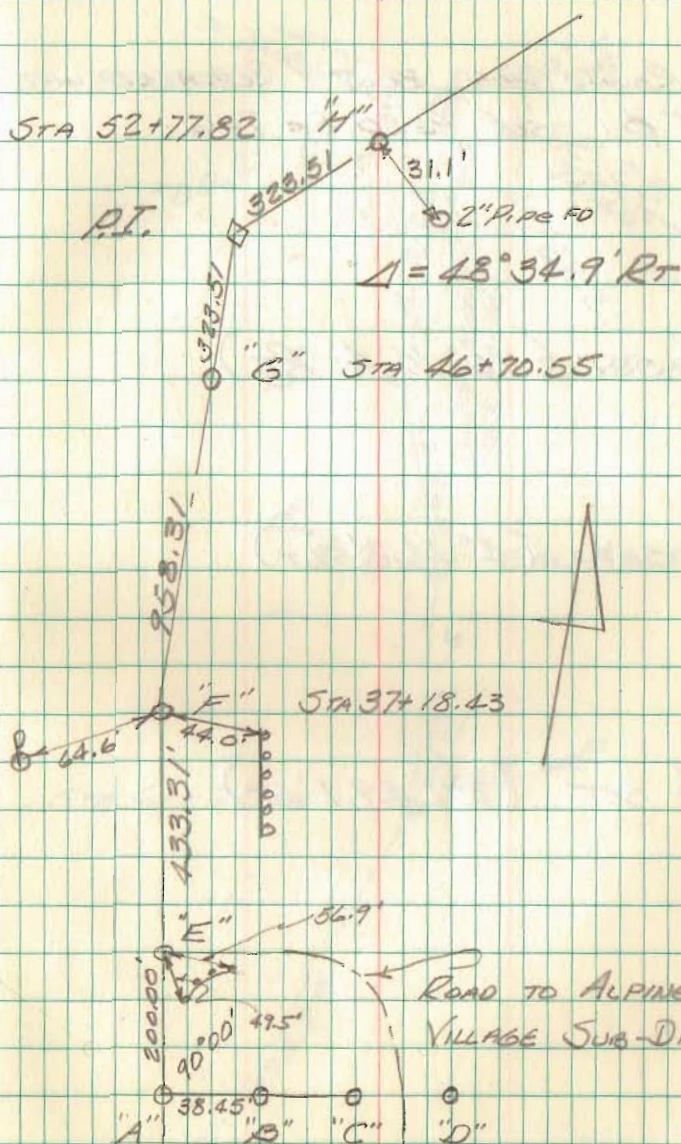 STA 52+77.82
"H"
323.51
31.1'
P.I.
2" Pipe FD
Δ = 48° 34.9' RT
323.51
"G" STA 46+70.55
958.31
"F" STA 37+18.43
64.6 44.0'
433.31'
"E" 56.9'
ROAD TO ALPINE
VILLAGE SUB-DI
200.00'
49.5'
90°00'
38.45'
"A" "B" "C" "D"